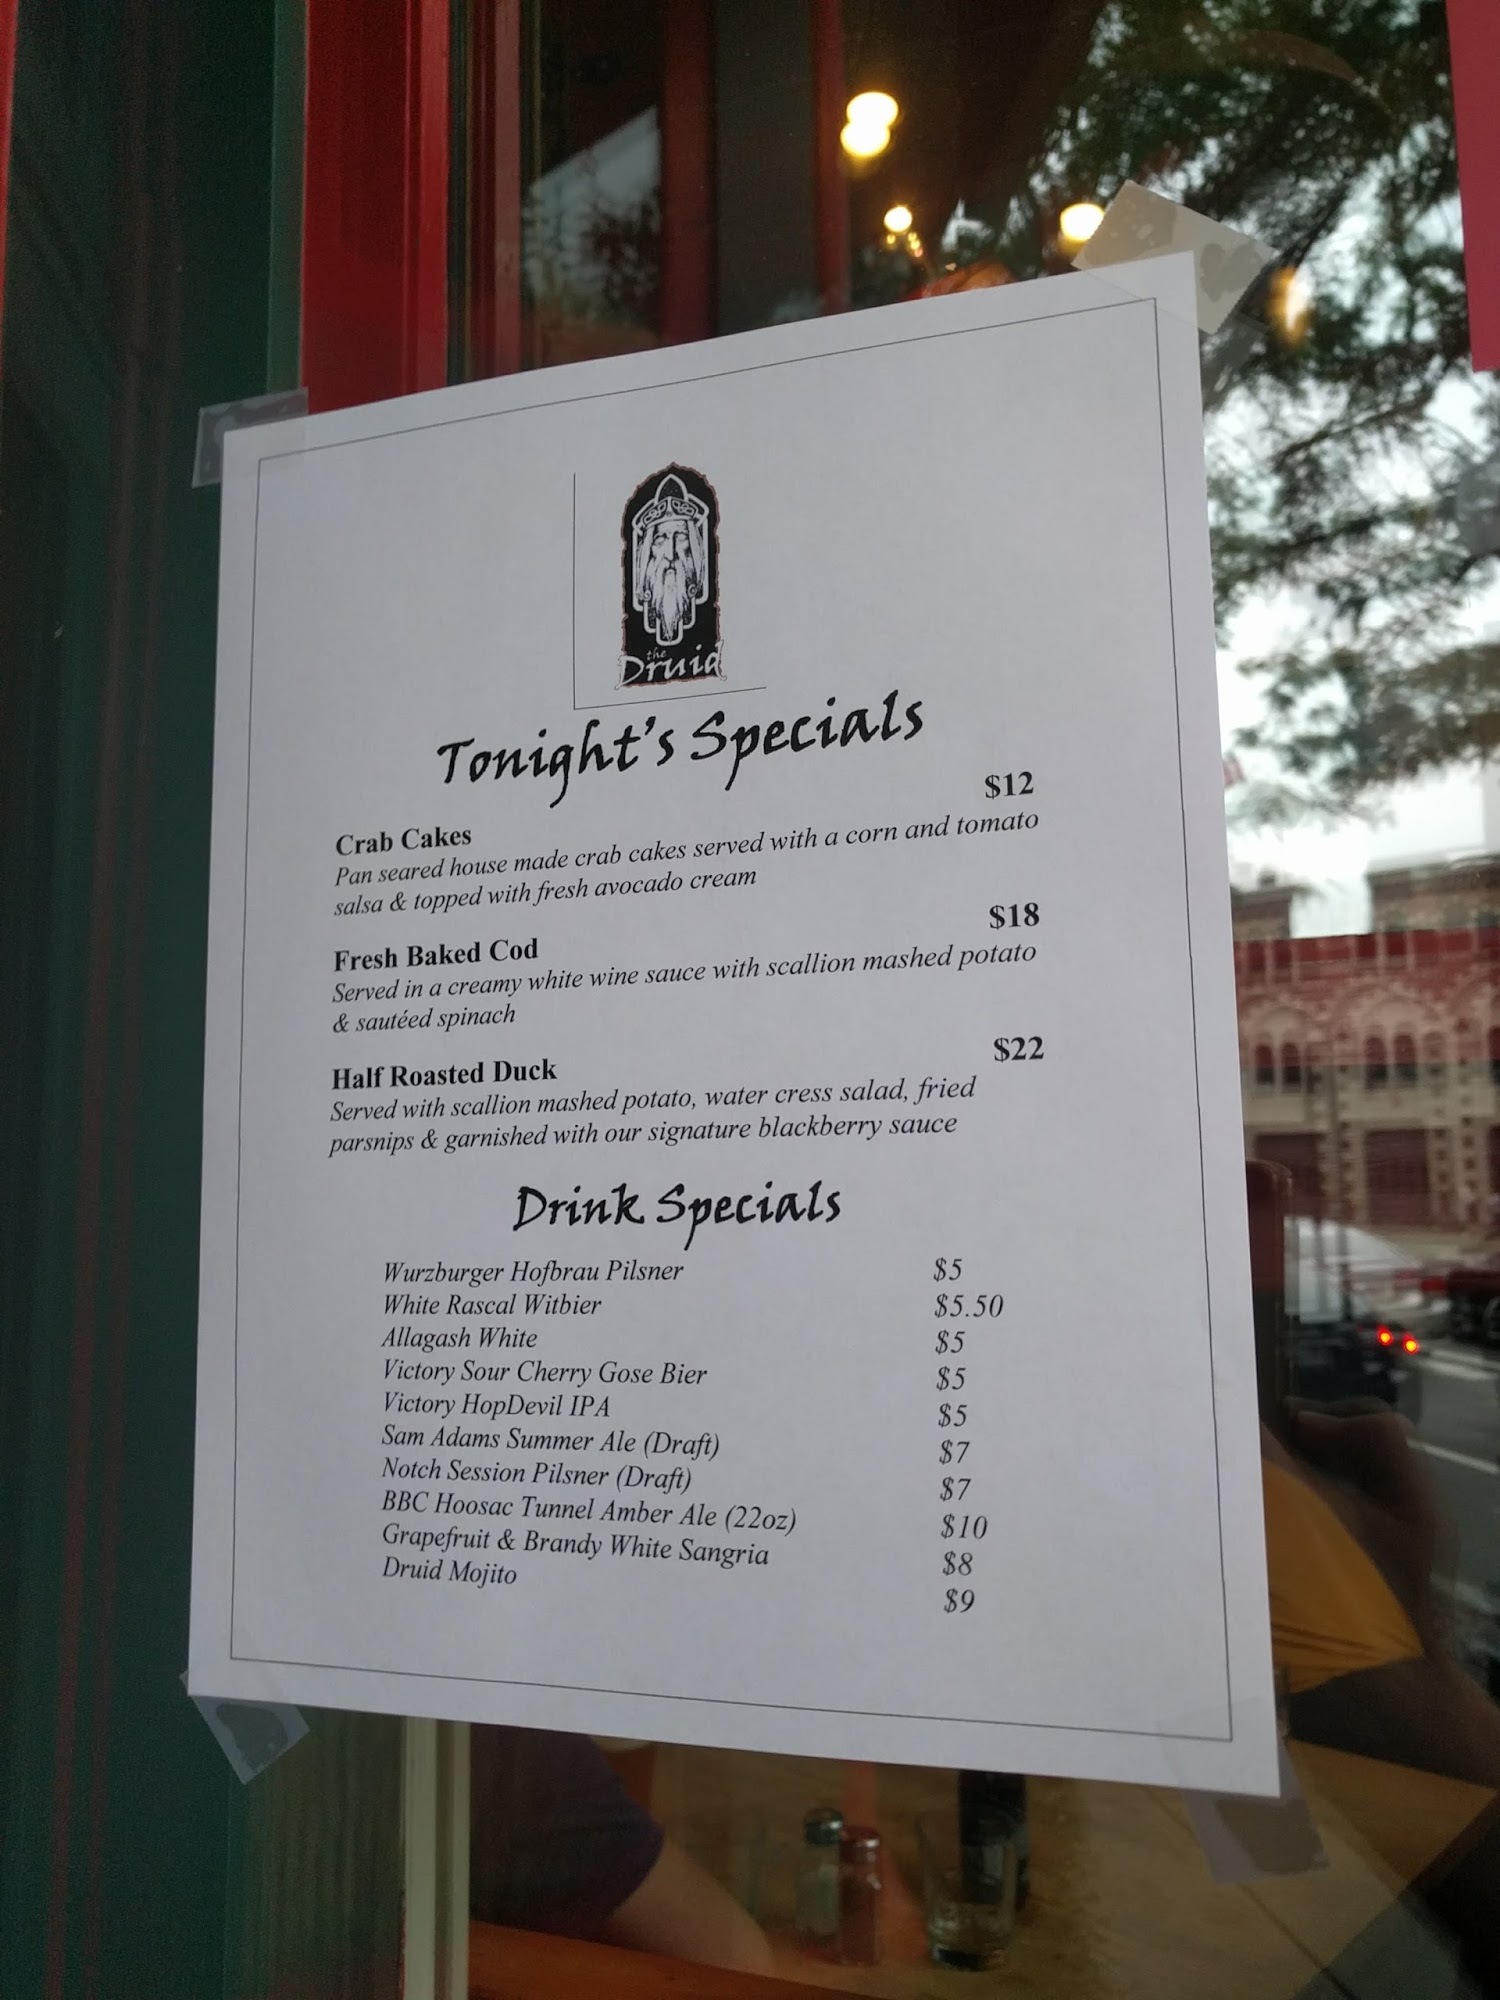 the
Druid
Tonight's Specials
Crab Cakes $12
Pan seared house made crab cakes served with a corn and tomato
salsa & topped with fresh avocado cream
Fresh Baked Cod $18
Served in a creamy white wine sauce with scallion mashed potato
& sautéed spinach
Half Roasted Duck $22
Served with scallion mashed potato, water cress salad, fried
parsnips & garnished with our signature blackberry sauce
Drink Specials
Wurzburger Hofbrau Pilsner $5
White Rascal Witbier $5.50
Allagash White $5
Victory Sour Cherry Gose Bier $5
Victory HopDevil IPA $5
Sam Adams Summer Ale (Draft) $7
Notch Session Pilsner (Draft) $7
BBC Hoosac Tunnel Amber Ale (22oz) $10
Grapefruit & Brandy White Sangria $8
Druid Mojito $9